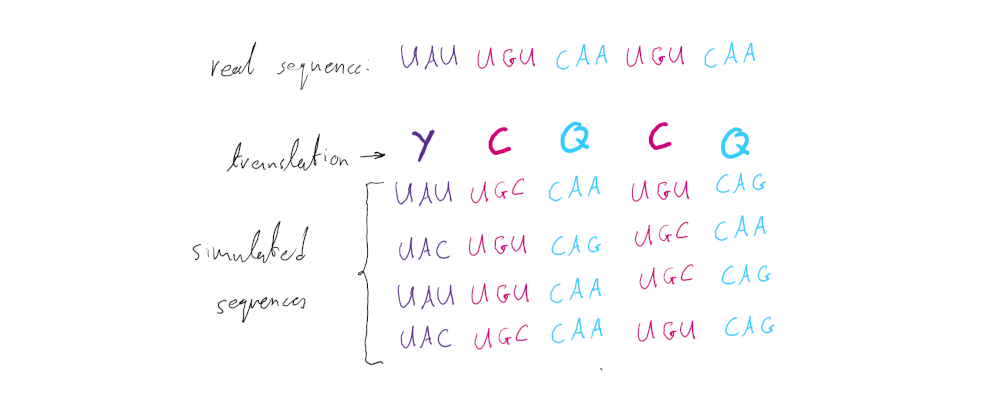 real sequence: UAU UGU CAA UGU CAA
translation → Y C Q C Q
UAU UGC CAA UGU CAG
simulated UAC UGU CAG UGC CAA
sequences UAU UGU CAA UGC CAG
UAC UGC CAA UGU CAG